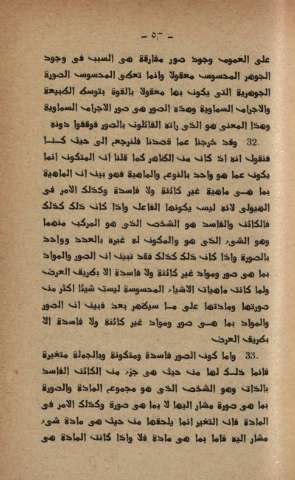 - ٥٣ -
على العموم وجود صور مفارقة هى السبب فى وجود
الجوهر المحسوس معقولا وانما تعطى المحسوس الصورة
الجوهرية التى يكون بها معقولا بالقوة بتوسط الطبيعة
والاجرام السماوية وهذه الصور هى صور الاجرام السماوية
وهذا المعنى هو الذى رامه القائلون بالصور فوقفوا دونه
32. وقد خرجنا عما قصدنا فلنرجع الى حيث كنا
فنقول انه اذ كان من الظاهر كما قلنا ان المتكون انما
يكون عما هو واحد بالنوع والماهية فهو بين ان الماهية
بما هى ماهية غير كائنة ولا فاسدة وكذلك الامر فى
الهيولى لانه ليس يكونها الفاعل واذا كان ذلك كذلك
فالكائن والفاسد هو الشخص الذى هو المركب منهما
وهو الشىء الذى هو والمكون له غيره بالعدد وواحد
بالصورة واذا كان ذلك كذلك فقد تبين ان الصور والمواد
بما هى صور ومواد غير كائنة ولا فاسدة الا بطريق العرض
ولما كانت ماهيات الاشياء المحسوسة ليست شيئا اكثر من
صورتها ومادتها على ما سيظهر بعد فبين ان الصور
والمواد بما هى صور ومواد غير كائنة ولا فاسدة الا
بطريق العرض
33. واما كون الصور فاسدة ومتكونة وبالجملة متغيرة
فانما ذلك لها من حيث هى جزء من الكائن الفاسد
بالذات وهو الشخص الذى هو مجموع المادة والصورة
بما هى صورة مشار اليها لا بما هى صورة وكذلك الامر فى
المادة فان التغير انما يلحقها من حيث هى مادة شىء
مشار اليه فاما بما هى مادة فلا واذا كانت المادة هى